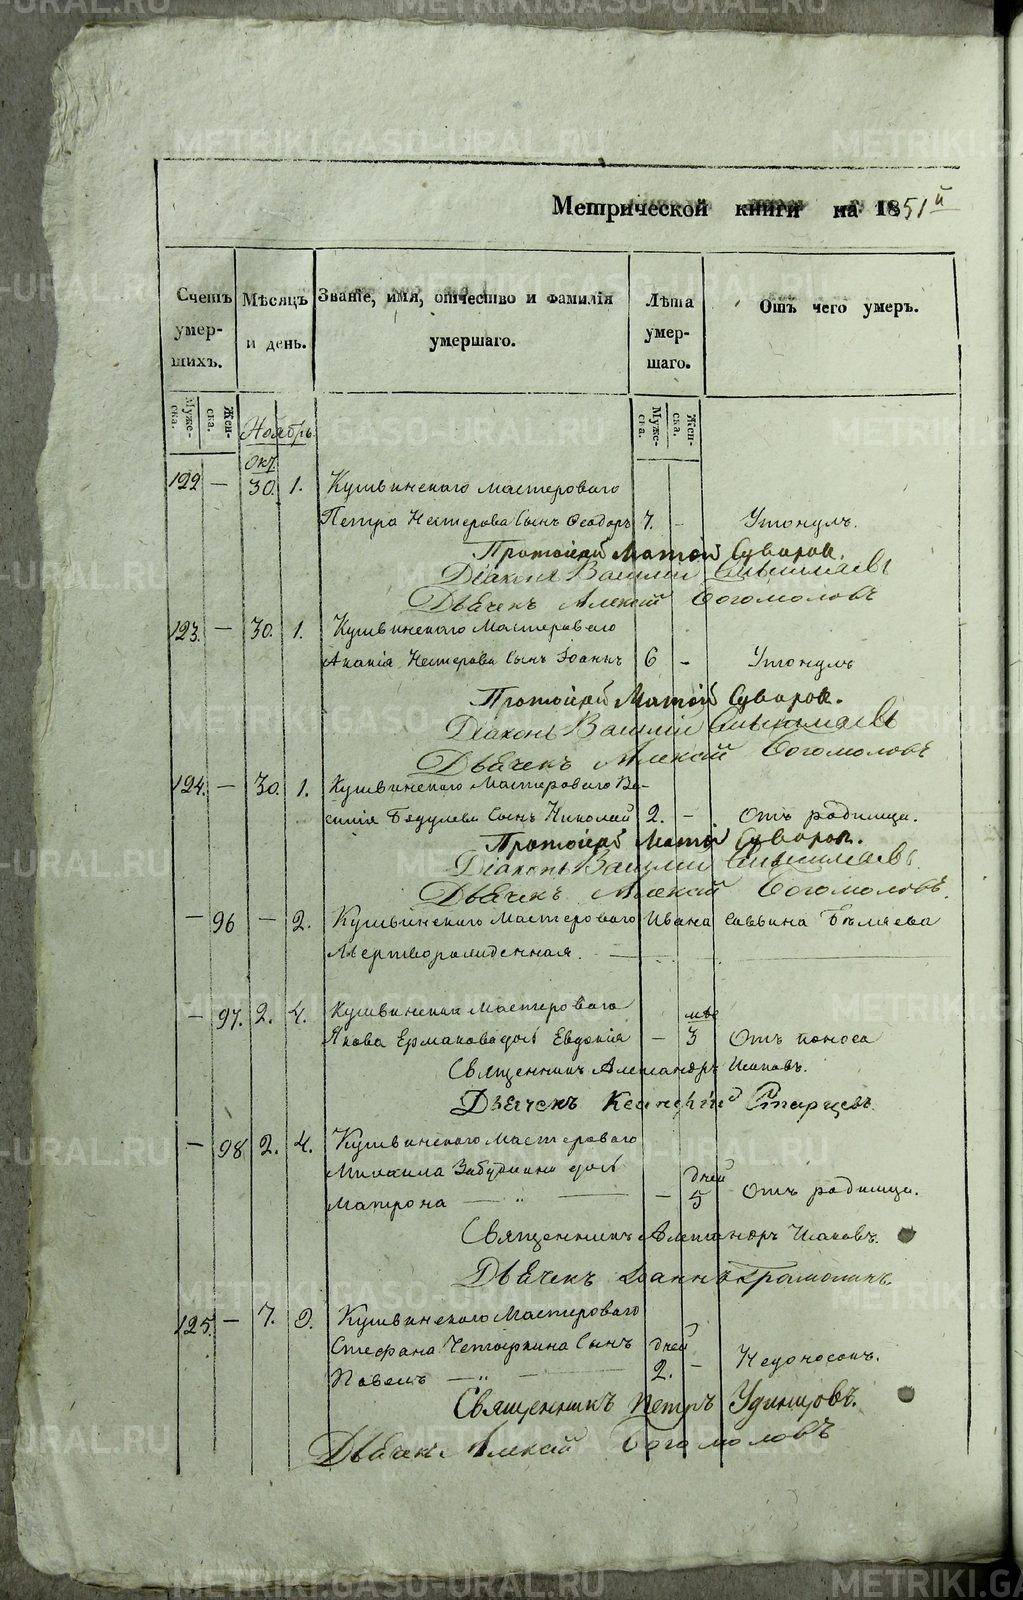 METRIKI.GASO-URAL.RU
Метрической книги на 1851й
Счетъ умер-шихъ.
Мѣсяцъ и день.
Званіе, имя, отчество и фамилія умершаго.
Лѣта умер-шаго.
Отъ чего умеръ.
Муже-ска.
Жен-ска.
Муже-ска.
Жен-ска.
Ноябрь
Окт.
122 — 30. 1. Кушвинского мастероваго
Петра Нестерова сынъ Ѳеодоръ 7. — Утонулъ.
Протоіерей Матѳей Суворов.
Діаконъ Василій
Дьячекъ Алексій Богомоловъ
123. — 30. 1. Кушвинского Мастероваго
Нестерова сынъ Іоаннъ 6 — Утонулъ
Протоіерей Матѳей Суворов.
Діаконъ Василій
Дьячекъ Алексій Богомоловъ
124. — 30. 1. Кушвинского Мастероваго Ва-
силія сынъ Николай 2. — Отъ родимца.
Протоіерей Матѳей Суворов.
Діаконъ Василій
Дьячекъ Алексій Богомоловъ.
— 96 — 2. Кушвинского Мастероваго Ивана Саввина Бѣляева
Мертворожденная.
— 97. 2. 4. Кушвинского Мастероваго
Якова Ермакова дочь Евдокія — мѣс 3 Отъ поноса
Священникъ Александръ
Дьячекъ Старцевъ.
— 98 2. 4. Кушвинского Мастероваго
Михаила дочь
Матрона — " — — дней 5 Отъ родимца.
Священникъ Александръ
Дьячекъ Іоаннъ
125. — 7. 9. Кушвинского Мастероваго
Стефана сынъ
Павелъ — " — дней 2. — Недоносокъ.
Священникъ Петръ Удинцовъ.
Дьячекъ Алексій Богомоловъ